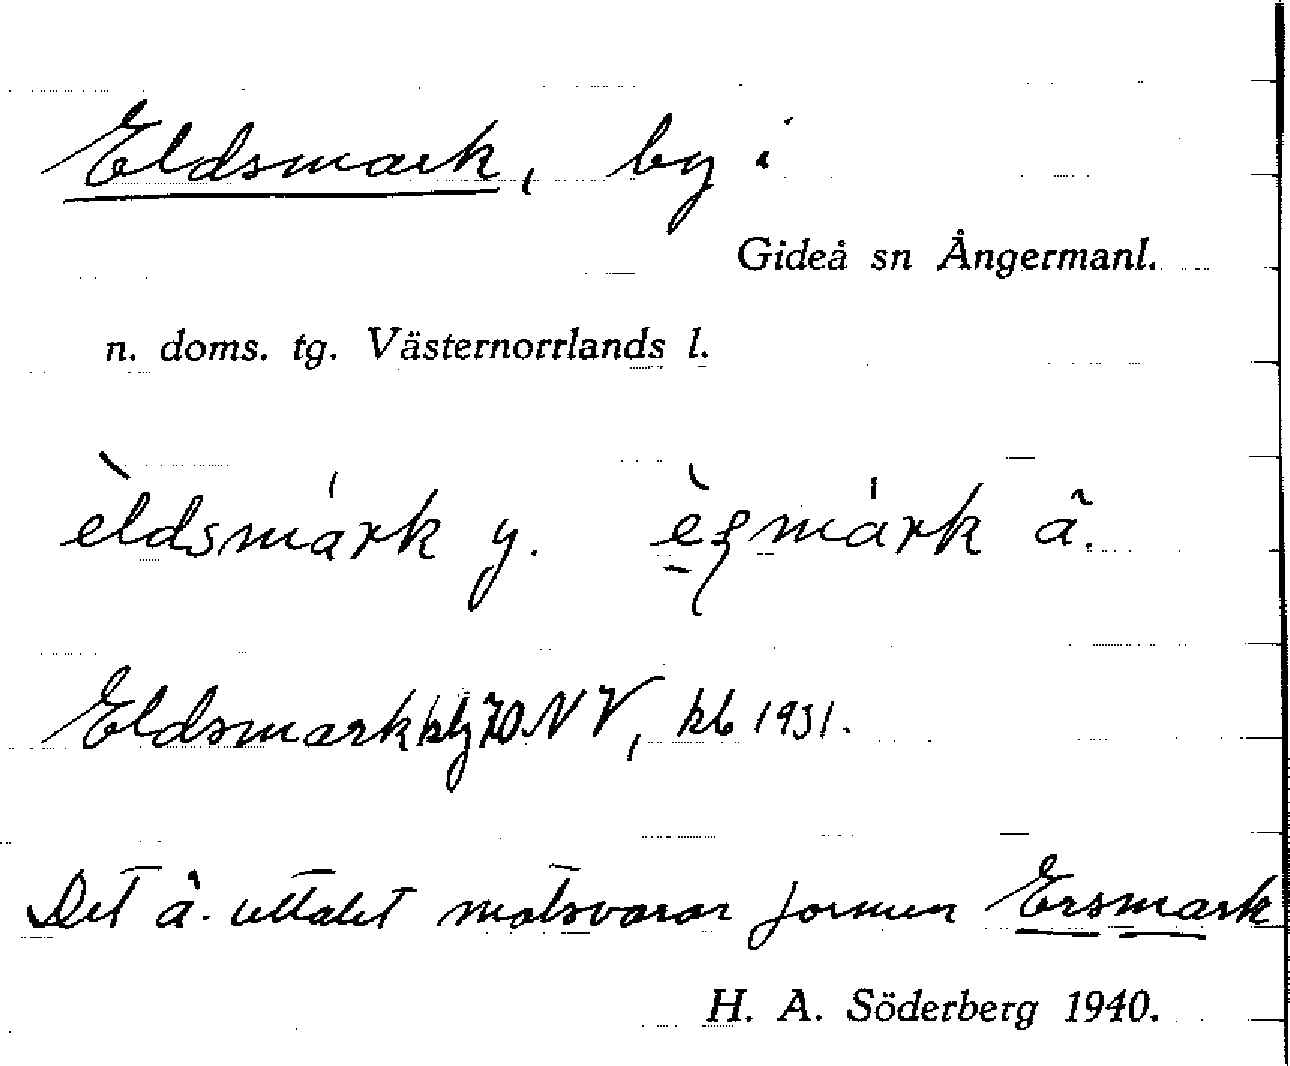 Eldsmark, by i
Gideå sn Ångermanl.
n. doms. tg. Västernorrlands l.
èldsmárk y. èʂmárk ä.
Eldsmark kbl 70 NV, kb 1931.
Det ä. uttalet motsvarar formen Ersmark
H. A. Söderberg 1940.